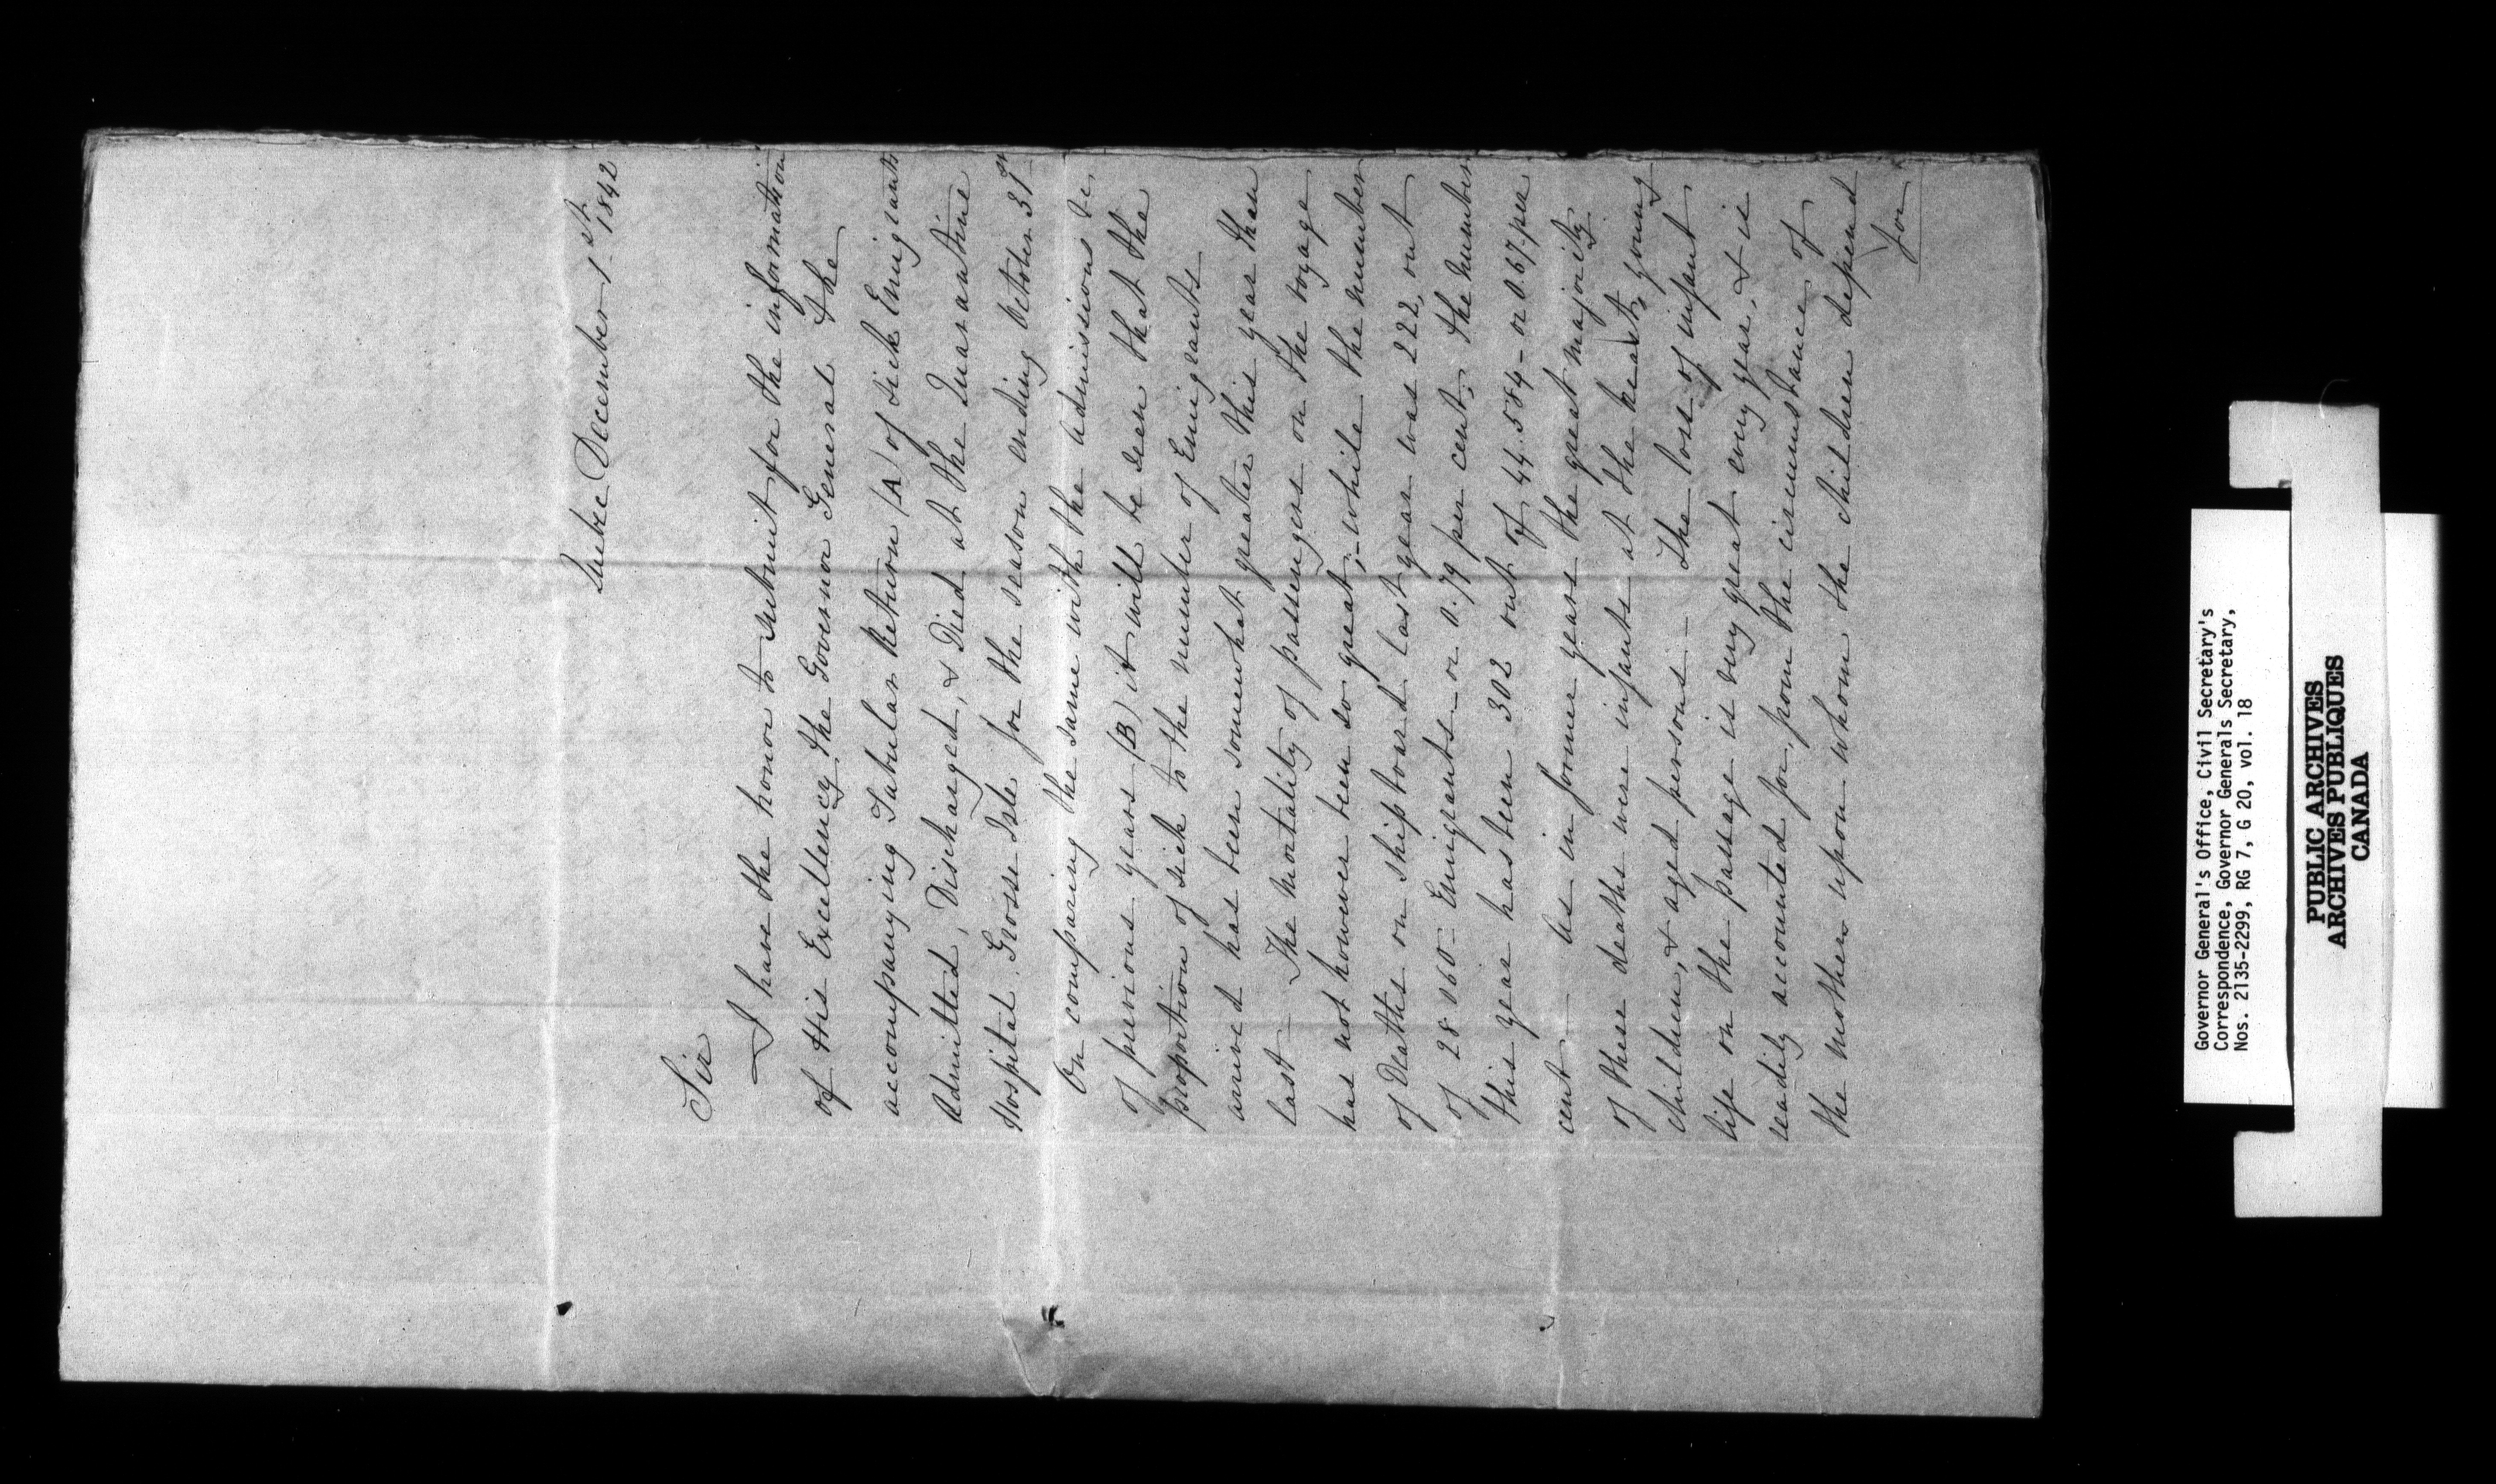 Quebec December 1st 1842
Sir
I have the honor to submit for the information
of His Excellency the Governor General the
accompanying Tabular Return (A) of Sick Emigrants
Admitted, Discharged, & Died at the Quarantine
Hospital Grosse Isle for the season ending October 31st
On comparing the same with the admissions &c,
of previous years (B) it will be seen that the
proportion of sick to the number of Emigrants
arrived has been somewhat greater this year than
last — The mortality of passengers on the voyage
has not however been so great,— while the number
of Deaths on shipboard last year was 222, out
of 28 060 — Emigrants — or 0.79 per cent, the number
this year has been 302 out of 44.584 — or 0 67 per
cent — As in former years the great majority
of these deaths were infants at the breast, young
children, & aged persons — The loss of infant
life on the passage is very great every year, & is
readily accounted for, from the circumstance of
the mothers upon whom the children depend
for
Governor General's Office, Civil Secretary's
Correspondence, Governor Generals Secretary,
Nos. 2135-2299, RG 7, G 20, vol. 18
PUBLIC ARCHIVES
ARCHIVES PUBLIQUES
CANADA